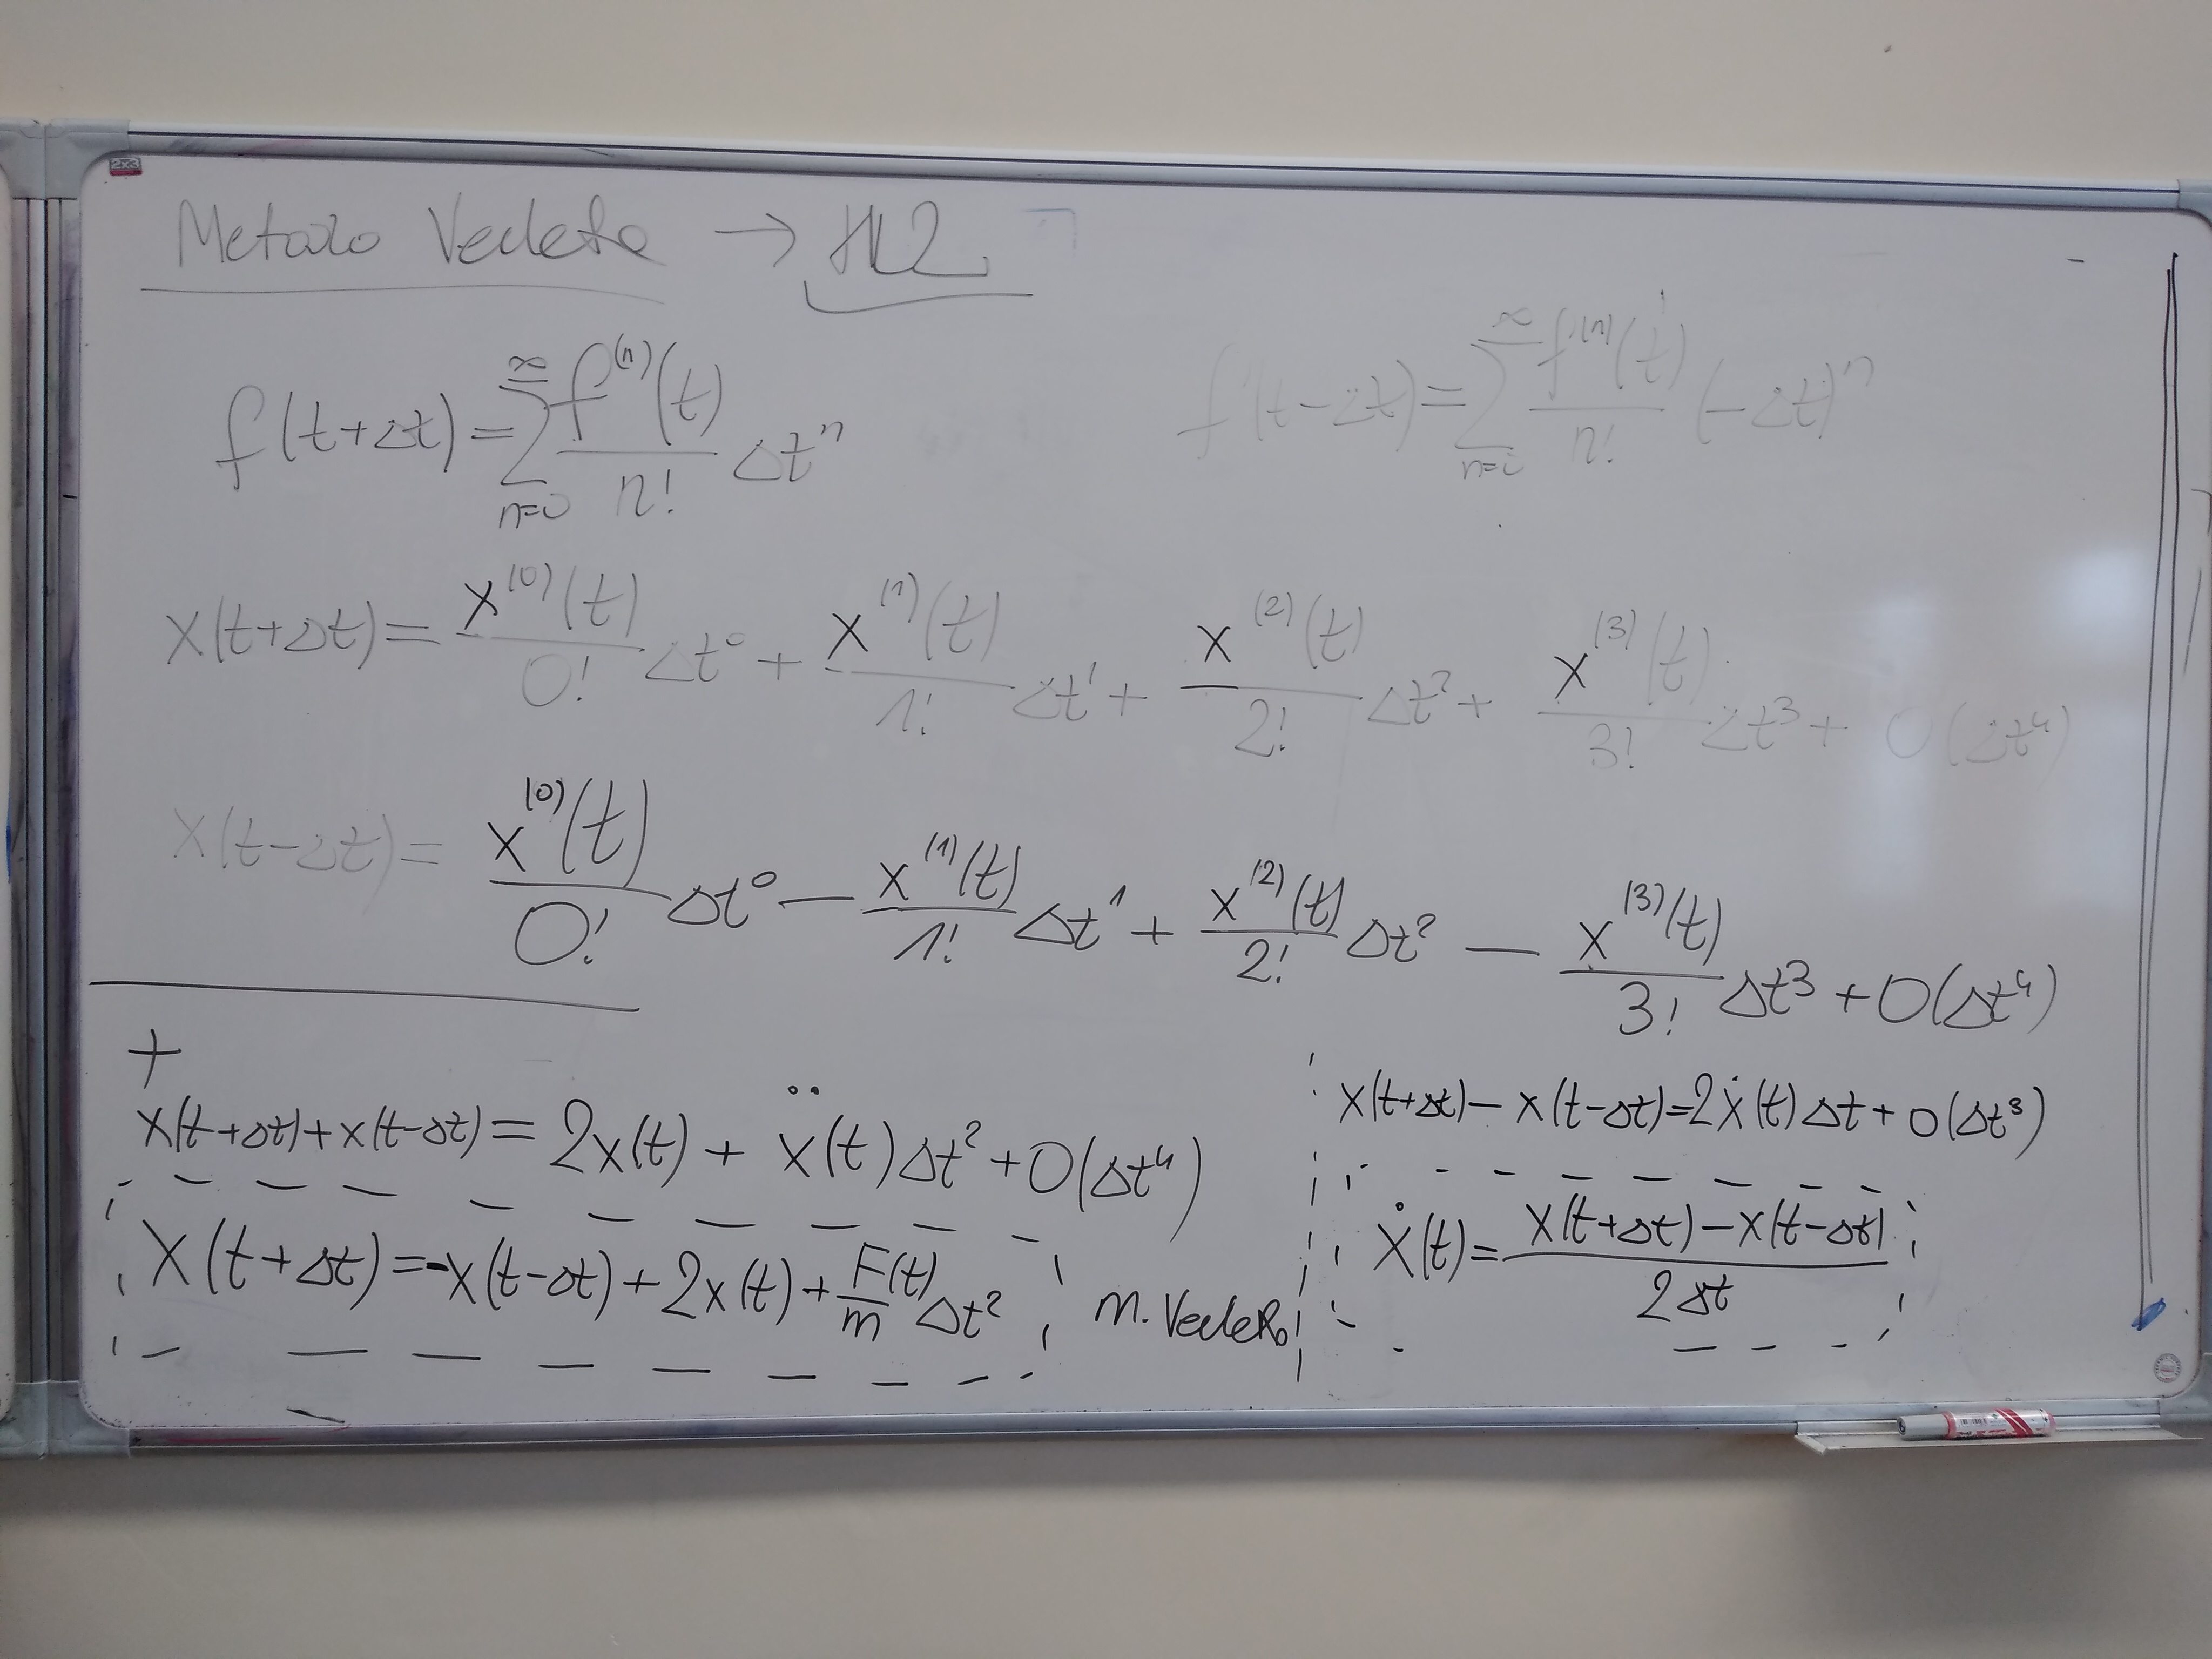 Metoda Verleta → HL2
f(t+Δt) = ∑_{n=0}^{∞} f^{(n)}(t)/n! Δt^n
f(t-Δt) = ∑_{n=0}^{∞} f^{(n)}(t)/n! (-Δt)^n
x(t+Δt) = x^{(0)}(t)/0! Δt^0 + x^{(1)}(t)/1! Δt^1 + x^{(2)}(t)/2! Δt^2 + x^{(3)}(t)/3! Δt^3 + O(Δt^4)
x(t-Δt) = x^{(0)}(t)/0! Δt^0 - x^{(1)}(t)/1! Δt^1 + x^{(2)}(t)/2! Δt^2 - x^{(3)}(t)/3! Δt^3 + O(Δt^4)
+
x(t+Δt)+x(t-Δt) = 2x(t) + ẍ(t)Δt^2 + O(Δt^4)
x(t+Δt) = -x(t-Δt) + 2x(t) + F(t)/m Δt^2
m. Verleta
x(t+Δt) - x(t-Δt) = 2ẋ(t)Δt + O(Δt^3)
ẋ(t) = (x(t+Δt) - x(t-Δt))/2Δt